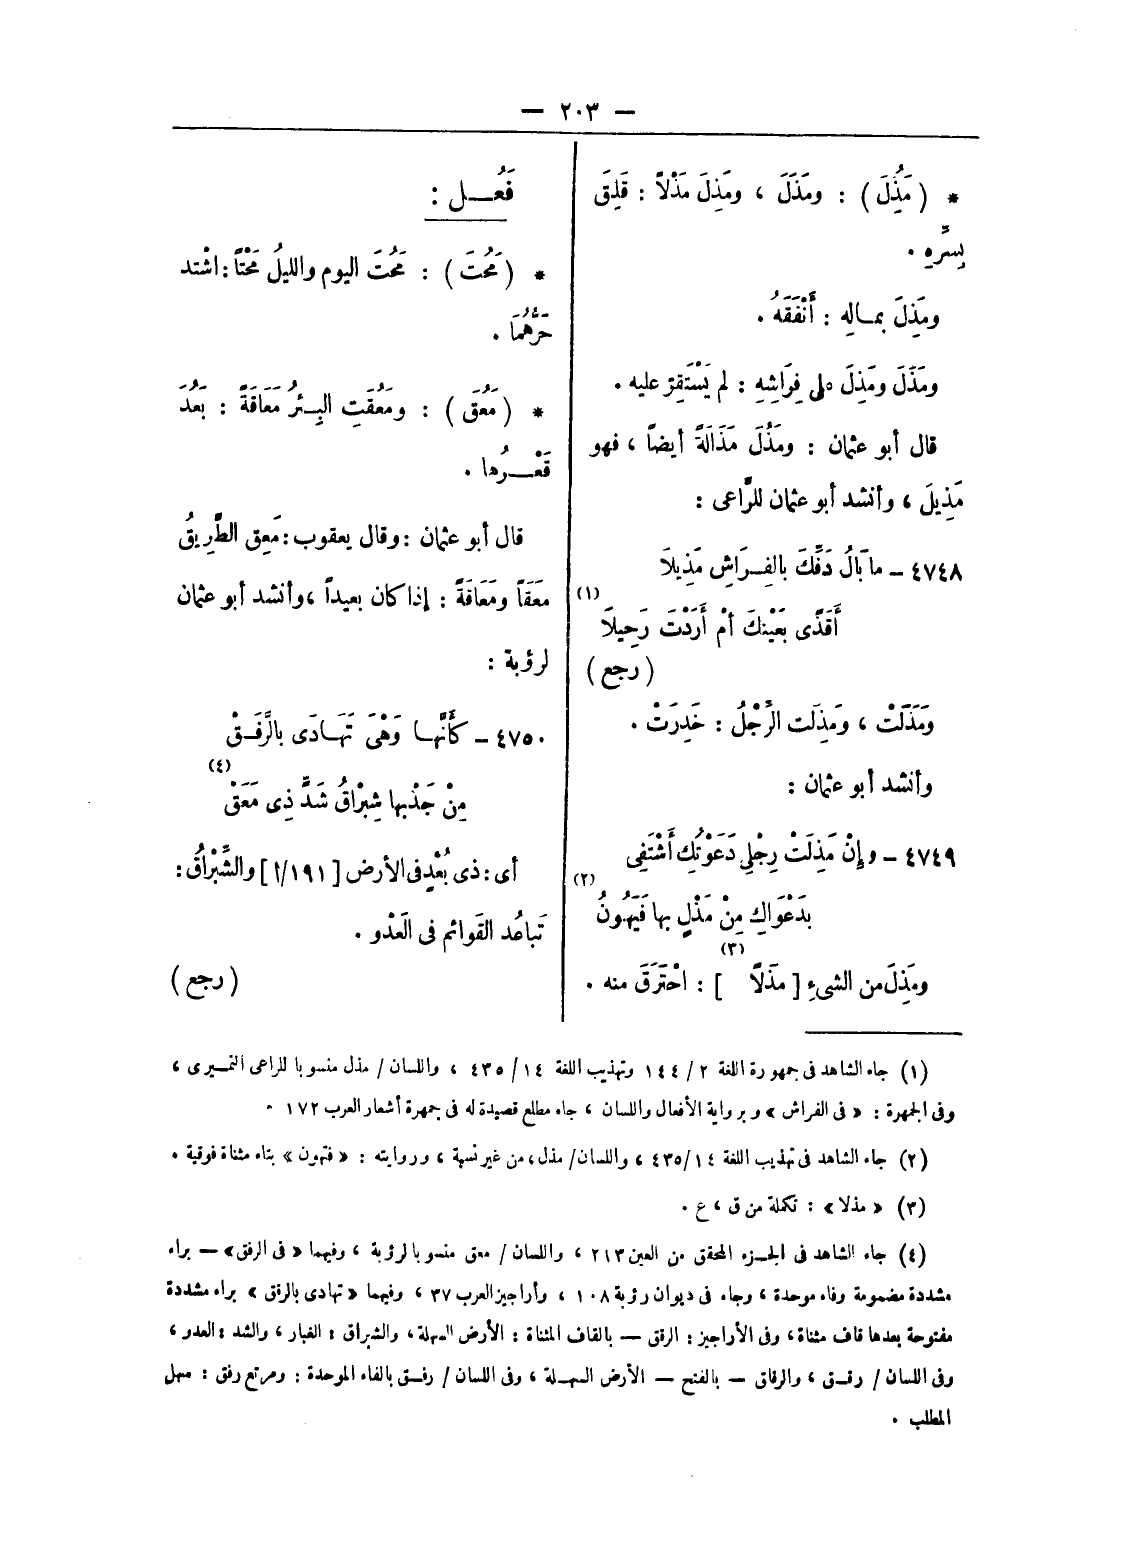 — ٢٠٣ —
* ( مَذُِلَ ) : ومَذَلَ ، ومَذِلَ مَذْلاً : قَلِقَ
بِسرِّهِ .
ومَذِلَ بمـاله : أَنْفَقَهُ .
ومَذَلَ ومَذِلَ على فِرَاشِهِ : لم يَسْتَقِرّ عليه .
قال أبو عثمان : ومَذُلَ مَذَالَةً أيضاً ، فهو
مَذِيلَ ، وأنشد أبو عثمان للرَّاعى :
٤٧٤٨ ــ ما بَالُ دَفِّكَ بالفِـرَاشِ مَذِيلَا
(١)
أَقَذًى بَعَيْنكَ أمْ أَرَدْتَ رَحِيلَا
( رجع )
ومَذَلَتْ ، ومَذِلَت الرِّجْلُ : خَدِرَتْ .
وأنشد أبو عثمان :
٤٧٤٩ ــ وإِنْ مَذِلَتْ رِجْلِي دَعَوْتُكِ أَشْتَفِى
(٢)
بِدَعْوَاكِ مِنْ مَذْلٍ بها فَيَهُونُ
(٣)
ومَذِلَ من الشىءِ [ مَذلاً ] : احْتَرَقَ منه .
فَعُــل :
* ( مَحُتَ ) : مَحُتَ اليوم والليلُ مَحْتاً : اشْتد
حَرُّهُمَا .
* ( مَعُقَ ) : ومَعُقَتِ البِــئرُ مَعَاقَةً : بَعُدَ
قَعْــرُها .
قال أبو عثمان : وقال يعقوب : مَعِق الطَّرِيقُ
مَعَقاً ومَعَاقَةً : إذا كان بعيداً ، وأنشد أبو عثمان
لرؤبة :
٤٧٥٠ ــ كأَنَّهـا وَهْىَ تَهَـادَى بالرَّفَـقْ
(٤)
مِنْ جَذْبِها شِبْرَاقُ شَدٍّ ذِى مَعَقْ
أى : ذى بُعْدٍ فى الأرض [ ١٩١/أ ] والشِّبْرَاقُ :
تَباعُد القَوائم فى العَدْو .
( رجع )
(١) جاء الشاهد فى جمهورة اللغة ٢ / ١٤٤ وتهذيب اللغة ١٤ / ٤٣٥ ، واللسان / مذل منسوبا للراعى النميرى ،
وفى الجمهرة : « فى الفراش » وبرواية الأفعال واللسان ، جاء مطلع قصيدة له فى جمهرة أشعار العرب ١٧٢ .
(٢) جاء الشاهد فى تهذيب اللغة ١٤ / ٤٣٥ ، واللسان / مذل ، من غير نسبة ، وروايته : « فتهون » بتاء مثناة فوقية .
(٣) « مذلا » : تكملة من ق ، ع .
(٤) جاء الشاهد فى الجـزء المحقق من العين ٢١٣ ، واللسان / معق منسوبا لرؤبة ، وفيهما « فى الرفق » — براء
مشددة مضمومة وفاء موحدة ، وجاء فى ديوان رؤبة ١٠٨ ، وأراجيز العرب ٣٧ ، وفيهما « تهادى بالرقق » براء مشددة
مفتوحة بعدها قاف مثناة ، وفى الأراجيز : الرقق — بالقاف المثناة : الأرض السهلة ، والشبراق : الغبار ، والشد : العدو ،
وفى اللسان / رقـق ، والرقاق — بالفتح — الأرض السهـلة ، وفى اللسان / رفـق بالفاء الموحدة : ومرتع رفق : سهل
المطلب .